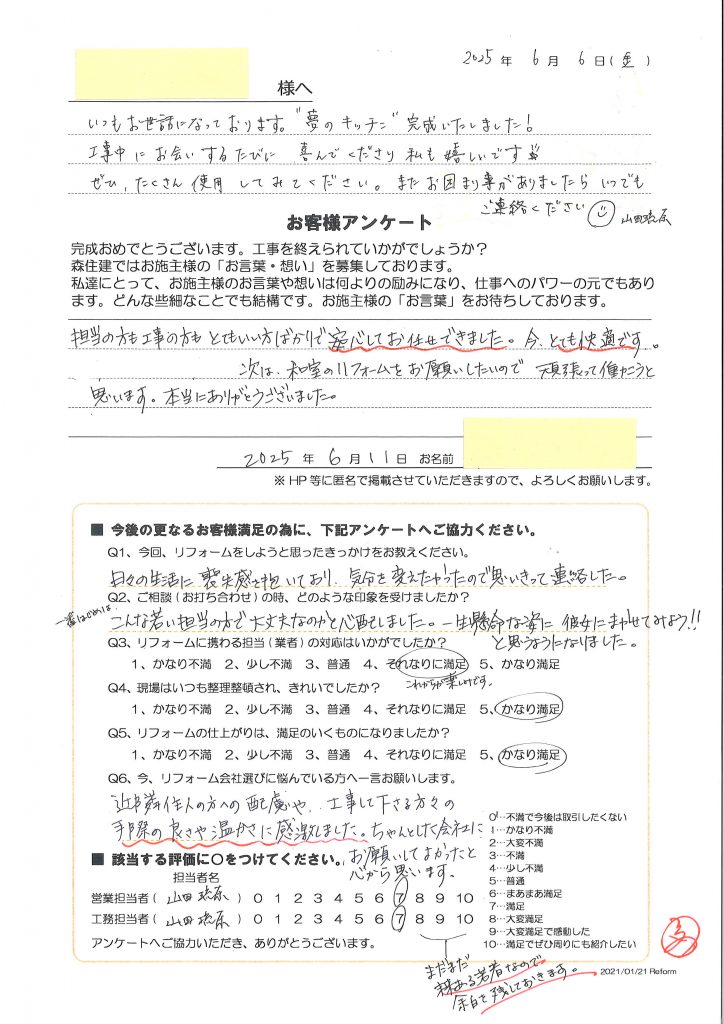 2025年 6月 6日(金)
様へ
いつもお世話になっております。"夢のキッチン"完成いたしました!
工事中にお会いするたびに 喜んでくださり 私も嬉しいです
ぜひ、たくさん使用してみてください。またお困り事がありましたらいつでも
ご連絡ください 山田
お客様アンケート
完成おめでとうございます。工事を終えられていかがでしょうか?
森住建ではお施主様の「お言葉・想い」を募集しております。
私達にとって、お施主様のお言葉や想いは何よりの励みになり、仕事へのパワーの元でもあり
ます。どんな些細なことでも結構です。お施主様の「お言葉」をお待ちしております。
担当の方も工事の方もとてもいい方ばかりで安心してお任せできました。今、とても快適です。
次は、和室のリフォームをお願いしたいので 頑張って働こうと
思います。本当にありがとうございました。
2025年 6月11日 お名前
※HP等に匿名で掲載させていただきますので、よろしくお願いします。
■ 今後の更なるお客様満足の為に、下記アンケートへご協力ください。
Q1、今回、リフォームをしようと思ったきっかけをお教えください。
日々の生活に喪失感を抱いており、気分を変えたかったので思いきって連絡した。
Q2、ご相談(お打ち合わせ)の時、どのような印象を受けましたか?
一番はじめは、
こんな若い担当の方で大丈夫なのかと心配しました。一生懸命な姿に 彼女にまかせてみよう!!
と思うようになりました。
Q3、リフォームに携わる担当(業者)の対応はいかがでしたか?
1、かなり不満 2、少し不満 3、普通 4、それなりに満足 5、かなり満足
これからが楽しみです。
Q4、現場はいつも整理整頓され、きれいでしたか?
1、かなり不満 2、少し不満 3、普通 4、それなりに満足 5、かなり満足
Q5、リフォームの仕上がりは、満足のいくものになりましたか?
1、かなり不満 2、少し不満 3、普通 4、それなりに満足 5、かなり満足
Q6、今、リフォーム会社選びに悩んでいる方へ一言お願いします。
近隣住人の方への配慮や、工事して下さる方々の
手際の良さや温かさに感激しました。ちゃんとした会社に
お願いしてよかったと
心から思います。
■ 該当する評価に○をつけてください。
担当者名
営業担当者(山田) 0 1 2 3 4 5 6 7 8 9 10
工務担当者(山田) 0 1 2 3 4 5 6 7 8 9 10
アンケートへご協力いただき、ありがとうございます。
0…不満で今後は取引したくない
1…かなり不満
2…大変不満
3…不満
4…少し不満
5…普通
6…まあまあ満足
7…満足
8…大変満足
9…大変満足で感動した
10…満足でぜひ周りにも紹介したい
まだまだ
ある若者なので
余白を残しておきます。
2021/01/21 Reform